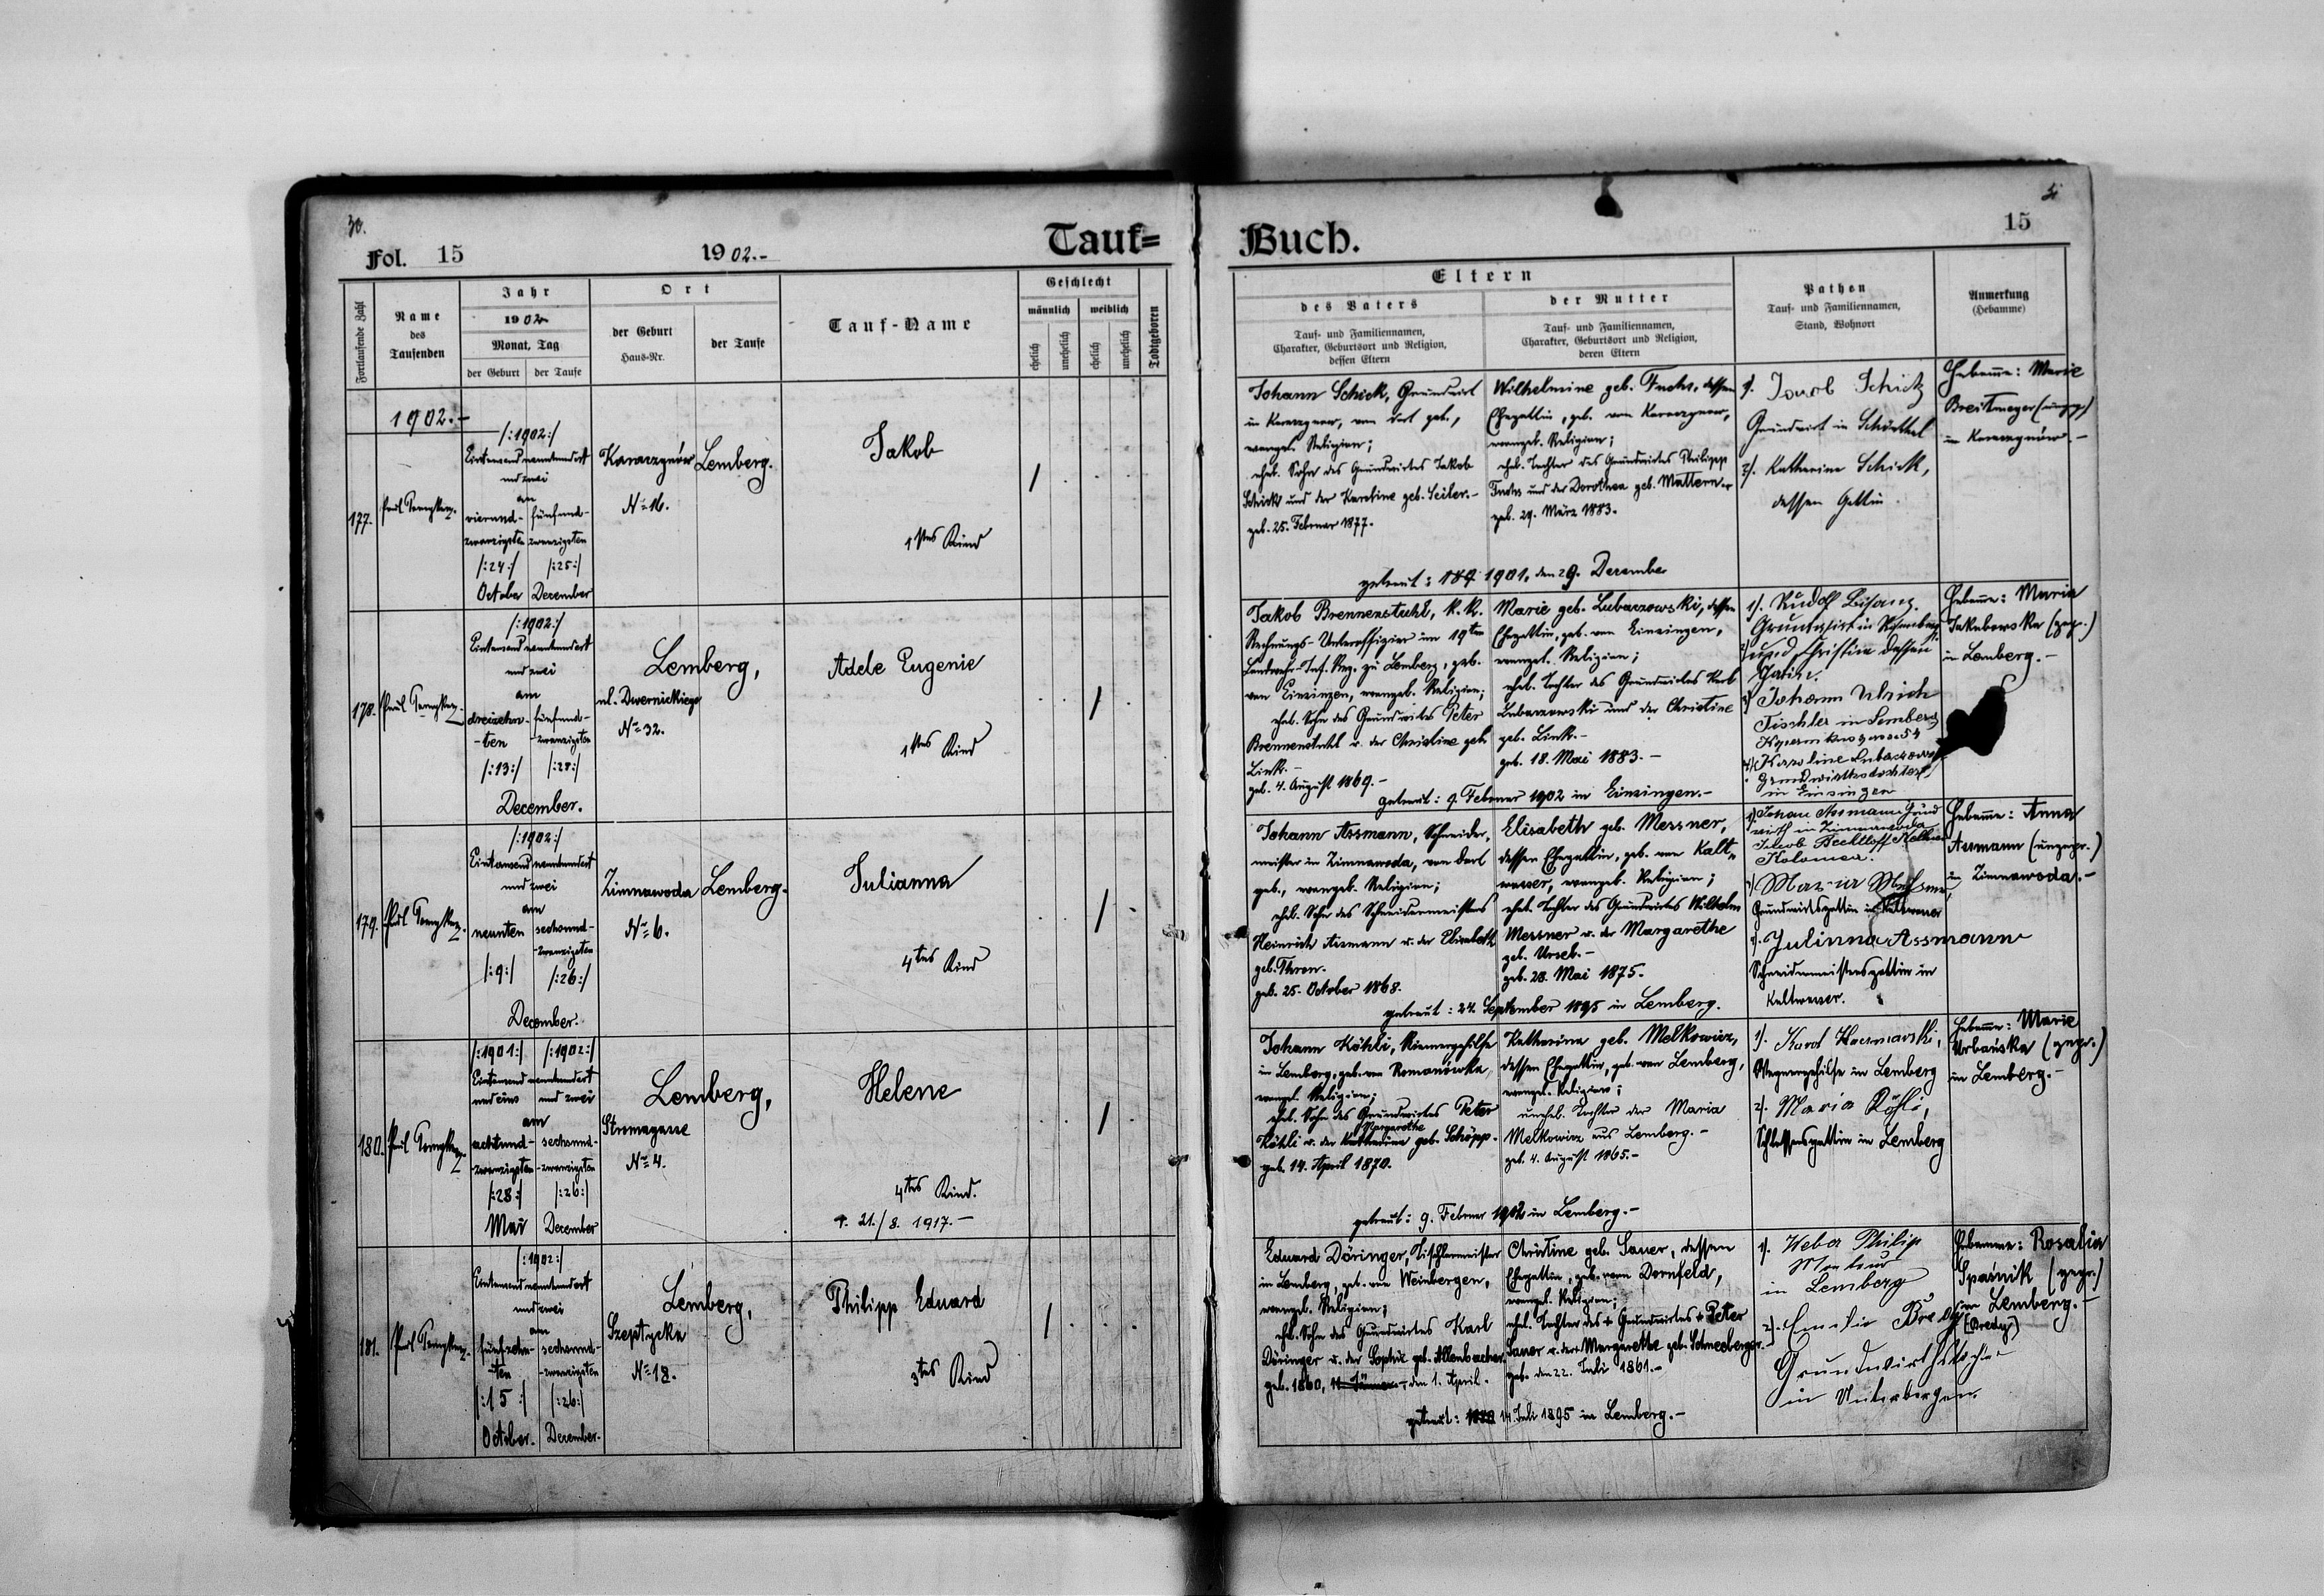 30.
Fol. 15
1902.-
Tauf=
Fortlaufende Zahl
Name
des
Taufenden
Jahr
1902
Monat, Tag
der Geburt
der Taufe
Ort
der Geburt
Haus-Nr.
der Taufe
Tauf-Name
Geschlecht
männlich
weiblich
ehelich
unehelich
ehelich
unehelich
Todtgeboren
1902.-
177.
/:1902:/
Eintausend neunhundert
und zwei
am
vierund-
zwanzigsten
/:24:/
October
fünfund-
zwanzigsten
/:25:/
December
Karaczynów
No 16.
Lemberg.
Jakob
1stes Kind
178.
/:1902:/
Eintausend neunhundert
und zwei
am
dreizehn-
-ten
/:13:/
fünfund-
-zwanzigsten
December.
Lemberg,
ul. Dwernickiego
No 32.
Adele Eugenie
1stes Kind
179.
/:1902:/
Eintausend neunhundert
und zwei
am
neunten
/:9:/
sechsund-
-zwanzigsten
/:26:/
December.
Zimnawoda
No 6.
Lemberg.
Julianna
4tes Kind
180.
/:1901:/
/:1902:/
Eintausend neunhundert
und eins
und zwei
am
achtund-
zwanzigsten
/:28:/
Mai
sechsund-
-zwanzigsten
/:26:/
December
Lemberg,
No 4.
Helene
4tes Kind.
21./8. 1917.-
181.
/:1902:/
Eintausend neunhundert
und zwei
am
fünfzehn-
-ten
/:15:/
October.
sechsund-
-zwanzigsten
/:26:/
December.
Lemberg,
Szeptycka
No 18.
Philipp Eduard
3tes Kind
Buch.
15
Eltern
des Vaters
Tauf- und Familiennamen,
Charakter, Geburtsort und Religion,
dessen Eltern
der Mutter
Tauf- und Familiennamen,
Charakter, Geburtsort und Religion,
deren Eltern
Pathen
Tauf- und Familiennamen,
Stand, Wohnort
Anmerkung
(Hebamme)
Johann Schick, Grundwirt
in Karaczynow, von dort geb.,
evangel. Religion;
ehel. Sohn des Grundwirtes Jakob
Schick und der Karoline geb. Seiler.-
geb. 25. Februar 1877.
Wilhelmine geb. Fuchs, dessen
Ehegattin, geb. von Karaczynow,
evangel. Religion;
ehel. Tochter des Grundwirtes Philipp
Fuchs und der Dorothea geb. Mattern.
geb. 29. März 1883.
getraut: 1901, den 29. December
1). Jacob Schick
Grundwirt in
2). Katharina Schick,
dessen Gattin.
Hebamme: Marie
Breitmayer
in Karaczynów.-
Jakob Brennenstuhl, k. k.
Rechnungs-Unteroffizier im 19ten
Landwehr-Inf. Reg. zu Lemberg, geb.
von Einsingen, evangel. Religion;
ehel. Sohn des Grundwirtes Peter
Brennenstuhl u. der Christine geb.
Link.-
geb. 4. August 1869.-
Marie geb. Lubaczowski, dessen
Ehegattin, geb. von Einsingen,
evangel. Religion;
ehel. Tochter des Grundwirtes Karl
Lubaczowski und der Christine
geb. Link.-
geb. 18. Mai 1883.-
getraut: 9. Februar 1902 in Einsingen.-
1). Rudolf
und Christine dessen
Gatin.
3) Johann Ulrich
Tischler in Lemberg
4) Karoline Lubaczowski
Grundwirthstochter
in Einsingen
Hebamme: Maria
Jakubowska (gepr.)
in Lemberg.-
Johann Assmann, Schneider-
meister in Zimnawoda, von dort
geb., evangel. Religion;
ehel. Sohn des Schneidermeisters
Heinrich Assmann u. der Elisabeth
geb. Thron.
geb. 25. October 1868.
Elisabeth geb. Messner,
dessen Ehegattin, geb. von Kalt-
wasser, evangel. Religion;
ehel. Tochter des Grundwirtes Wilhelm
Messner u. der Margarethe
geb. Urseb.-
geb. 28. Mai 1875.
getraut: 24. September 1895 in Lemberg.
1) Johann Assmann Grund
wirth in Zimnawoda
Jakob
Kolomea.
Grundwirtsgattin in Kaltwasser
Julianna Assmann
Schneidermeistersgattin in
Kaltwasser.
Hebamme: Anna
Assmann (ungepr.)
in Zimnawoda.-
Johann Köhli, Riemergehilfe
in Lemberg, geb. von Romanówka,
evangel. Religion;
ehel. Sohn des Grundwirtes Peter
Margarethe
Köhli u. der Katharina geb. Schöpp.
geb. 14. April 1870.
Katharina geb. Melkowicz,
dessen Ehegattin, geb. von Lemberg,
evangel. Religion;
unehel. Tochter der Maria
Melkowicz aus Lemberg.-
geb. 4. August 1865.-
getraut: 9. Februar 1902 in Lemberg.-
1).
Wagnergehilfe in Lemberg
2). Maria Köhli,
Schlossersgattin in Lemberg
Hebamme: Marie
Urbańska (gepr.)
in Lemberg.-
Eduard Döringer, Tischlermeister
in Lemberg, geb. von Weinbergen,
evangel. Religion;
ehel. Sohn des Grundwirtes Karl
Döringer u. der Sophie geb. Allenbacher.
geb. 1860, den 1. April.
Christine geb. Sauer, dessen
Ehegattin, geb. von Dornfeld,
evangel. Religion;
ehel. Tochter des + Grundwirtes + Peter
Sauer u. der + Margarethe geb. Schneeberger.-
geb. den 22. Juli 1861.-
getraut: 14. Juli 1895 in Lemberg.-
1). Weber Philip
in Lemberg
2).
(Bredy)
in Unterbergen
Hebamme: Rosalia
Spaśnik (gepr.)
in Lemberg.-